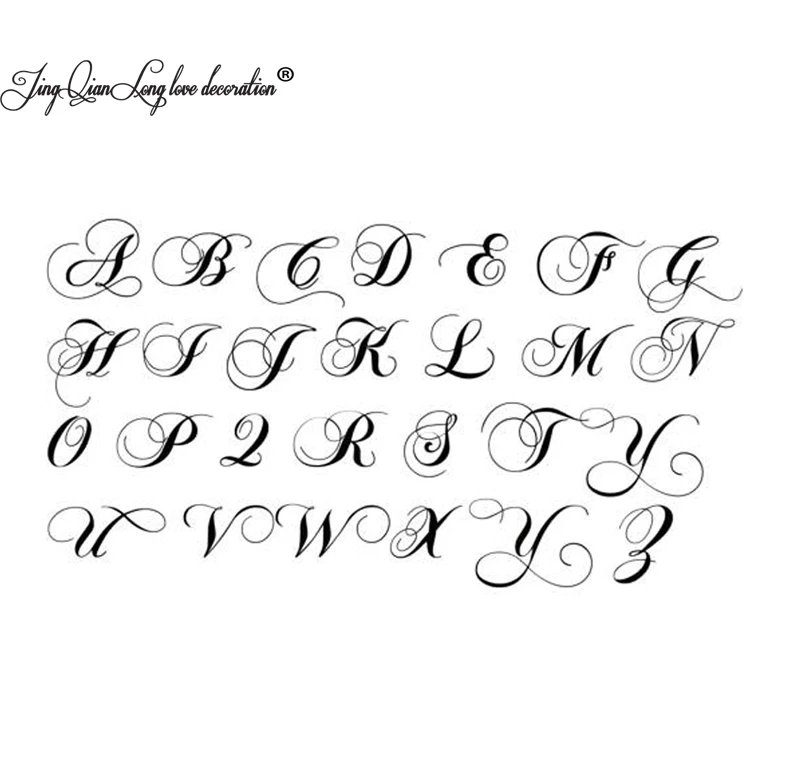 JingQianLong love decoration®
A B C D E F G
H I J K L M N
O P Q R S T Y
U V W X Y Z